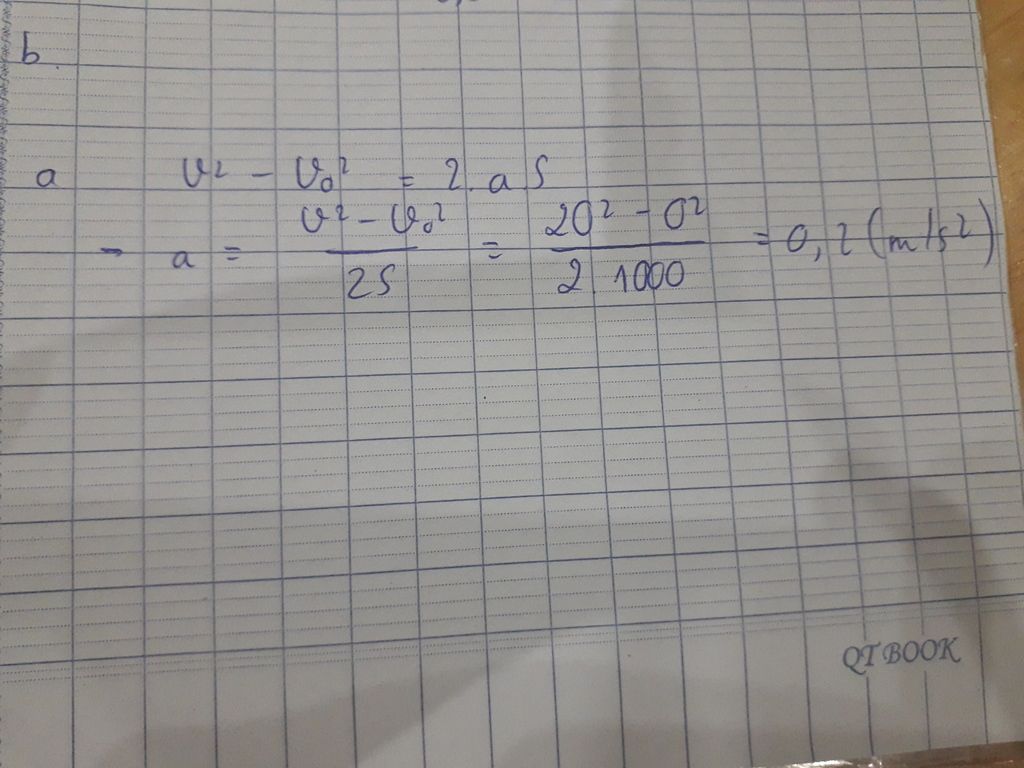 b.
a v² - v₀² = 2.a S
- a = (v² - v₀²) / 2S = (20² - 0²) / 2 1000 = 0,2 (m/s²)
QTBOOK